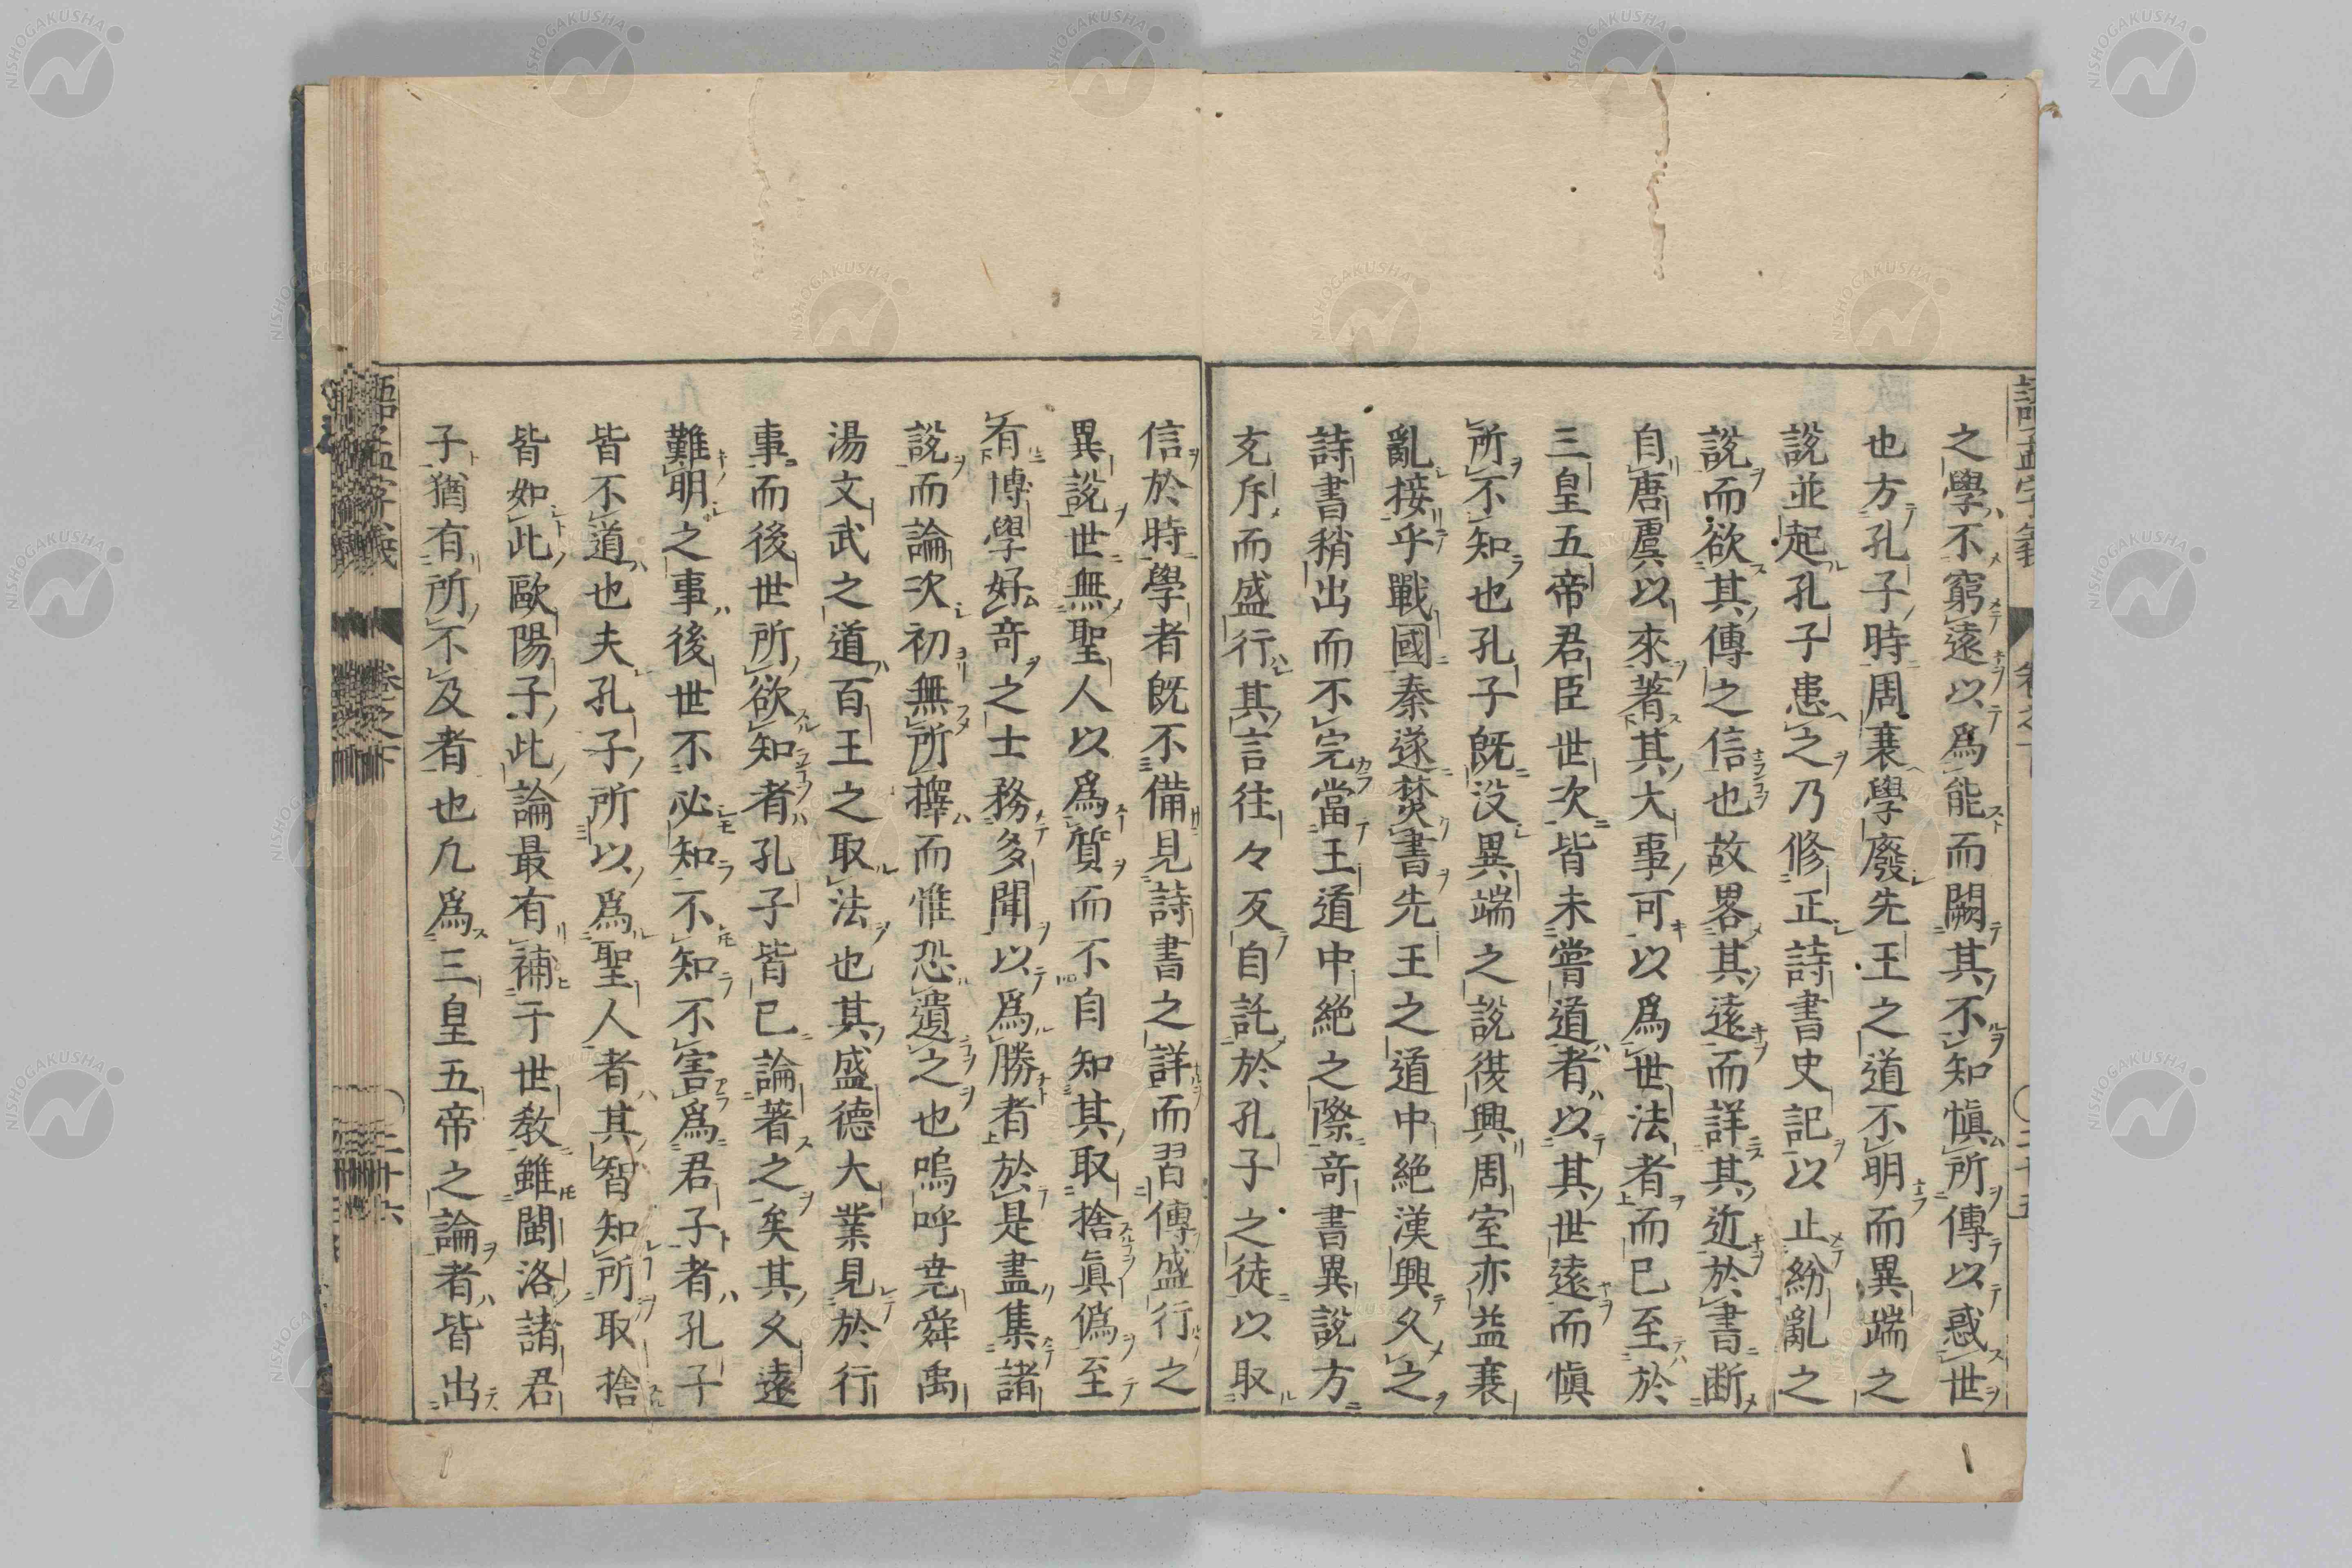 之學不窮遠以爲能而闕其不知愼所傳以惑世
也方孔子時周衰學廢先王之道不明而異端之
說並起孔子患之乃修正詩書史記以止紛亂之
說而欲其傳之信也故畧其遠而詳其近於書断
自唐虞以來著其大事可以爲世法者而已至於
三皇五帝君臣世次皆未嘗道者以其世遠而愼
所不知也孔子旣没異端之說復興周室亦益衰
亂接乎戰國秦遂焚書先王之道中絶漢興久之
詩書稍出而不完當王道中絶之際竒書異說方
充斥而盛行其言往々反自託於孔子之徒以取
信於時學者旣不備見詩書之詳而習傳盛行之
異說世無聖人以爲質而不自知其取捨眞僞至
有博學好竒之士務多聞以爲勝者於是盡集諸
說而論次初無所擇而惟恐遺之也嗚呼堯舜禹
湯文武之道百王之取法也其盛德大業見於行
事而後世所欲知者孔子皆已論著之矣其久遠
難明之事後世不必知不知不害爲君子者孔子
皆不道也夫孔子所以爲聖人者其智知所取捨
皆如此歐陽子此論最有補于世敎雖閩洛諸君
子猶有所不及者也凢爲三皇五帝之論者皆出
語孟字義
卷之下
二十六